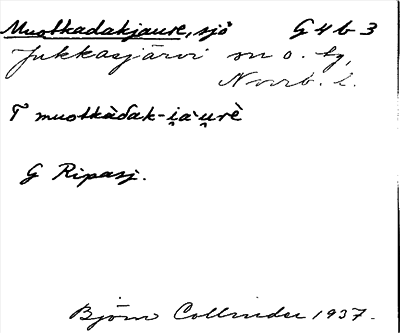 Muotkadakjaure, sjö G 4 b 3
Jukkasjärvi sn o. tg,
Norrb. l.
T muotkàdak-i̯a·u̯rè
G Ripasj.
Björn Collinder 1937.